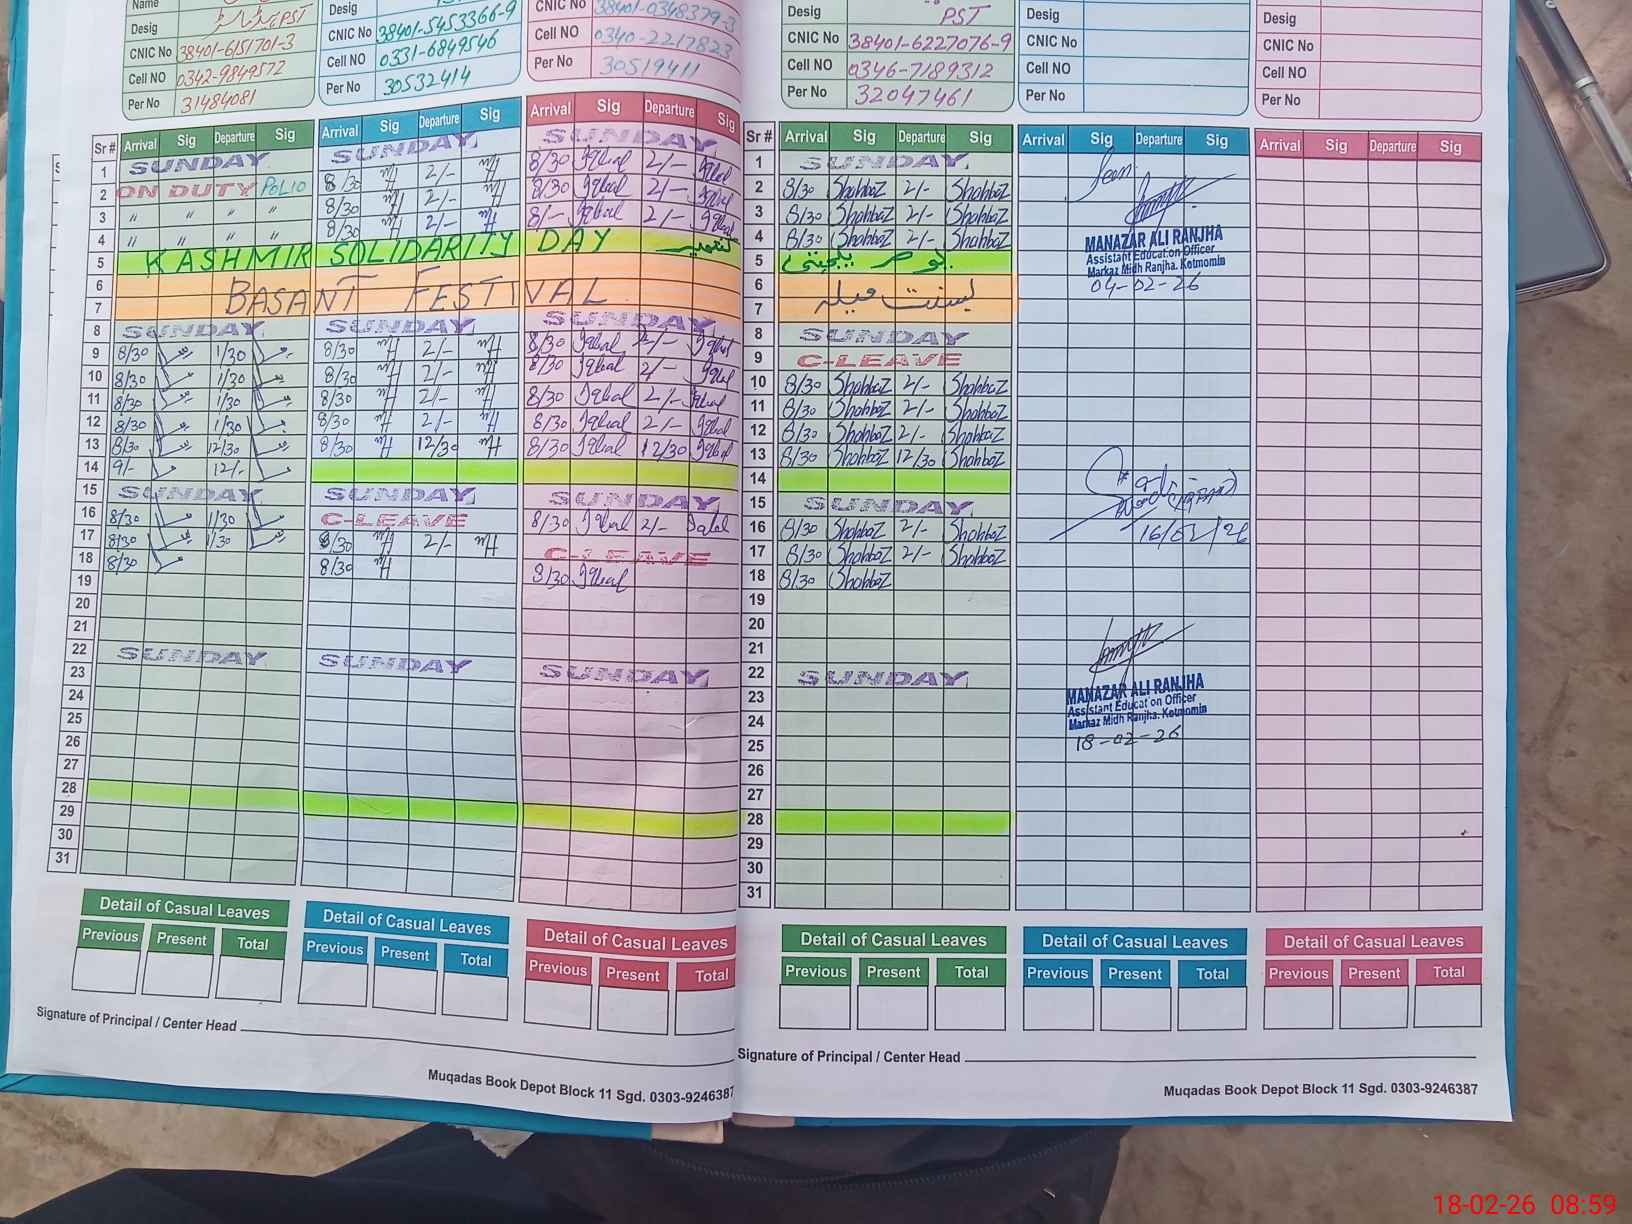 Name
Desig PST
CNIC No 38401-6151701-3
Cell NO 0342-9849572
Per No 31484081
Desig
CNIC No 38401-5453366-9
Cell NO 0331-6849546
Per No 30532414
CNIC No 38401-0348379-3
Cell NO 0340-2217823
Per No 30519411
Sr # Arrival Sig Departure Sig Arrival Sig Departure Sig Arrival Sig Departure Sig
1 SUNDAY SUNDAY SUNDAY
2 ON DUTY POLIO 8/30 2/- 8/30 Iqbal 2/- Iqbal
3 〃 〃 〃 〃 8/30 2/- 8/30 Iqbal 2/- Iqbal
4 〃 〃 〃 〃 8/30 2/- 8/- Iqbal 2/- Iqbal
5 KASHMIR SOLIDARITY DAY
6
7 BASANT FESTIVAL
8 SUNDAY SUNDAY SUNDAY
9 8/30 1/30 8/30 2/- 8/30 Iqbal 2/- Iqbal
10 8/30 1/30 8/30 2/- 8/30 Iqbal 2/- Iqbal
11 8/30 1/30 8/30 2/- 8/30 Iqbal 2/- Iqbal
12 8/30 1/30 8/30 2/- 8/30 Iqbal 2/- Iqbal
13 8/30 12/30 8/30 12/30 8/30 Iqbal 12/30 Iqbal
14 9/- 12/-
15 SUNDAY SUNDAY SUNDAY
16 8/30 1/30 C-LEAVE 8/30 Iqbal 2/-
17 8/30 1/30 8/30 2/- C-LEAVE
18 8/30 8/30 8/30 Iqbal
19
20
21
22 SUNDAY SUNDAY SUNDAY
23
24
25
26
27
28
29
30
31
Detail of Casual Leaves Detail of Casual Leaves Detail of Casual Leaves
Previous Present Total Previous Present Total Previous Present Total
Signature of Principal / Center Head
Muqadas Book Depot Block 11 Sgd. 0303-9246387
Desig PST
CNIC No 38401-6227076-9
Cell NO 0346-7189312
Per No 32047461
Desig
CNIC No
Cell NO
Per No
Desig
CNIC No
Cell NO
Per No
Sr # Arrival Sig Departure Sig Arrival Sig Departure Sig Arrival Sig Departure Sig
1 SUNDAY Seen
2 8/30 Shahbaz 2/- Shahbaz
3 8/30 Shahbaz 2/- Shahbaz
4 8/30 Shahbaz 2/- Shahbaz
MANAZAR ALI RANJHA
Assistant Education Officer
Markaz Midh Ranjha. Kotmomin
04-02-26
5 یوم یکجہتی
6 بسنت میلہ
7
8 SUNDAY
9 C-LEAVE
10 8/30 Shahbaz 2/- Shahbaz
11 8/30 Shahbaz 2/- Shahbaz
12 8/30 Shahbaz 2/- Shahbaz
13 8/30 Shahbaz 12/30 Shahbaz
14
15 SUNDAY
16 8/30 Shahbaz 2/- Shahbaz 16/02/26
17 8/30 Shahbaz 2/- Shahbaz
18 8/30 Shahbaz
19
20
21
22 SUNDAY
23
MANAZAR ALI RANJHA
Assistant Education Officer
Markaz Midh Ranjha. Kotmomin
18-02-26
24
25
26
27
28
29
30
31
Detail of Casual Leaves Detail of Casual Leaves Detail of Casual Leaves
Previous Present Total Previous Present Total Previous Present Total
Signature of Principal / Center Head
Muqadas Book Depot Block 11 Sgd. 0303-9246387
18-02-26 08:59